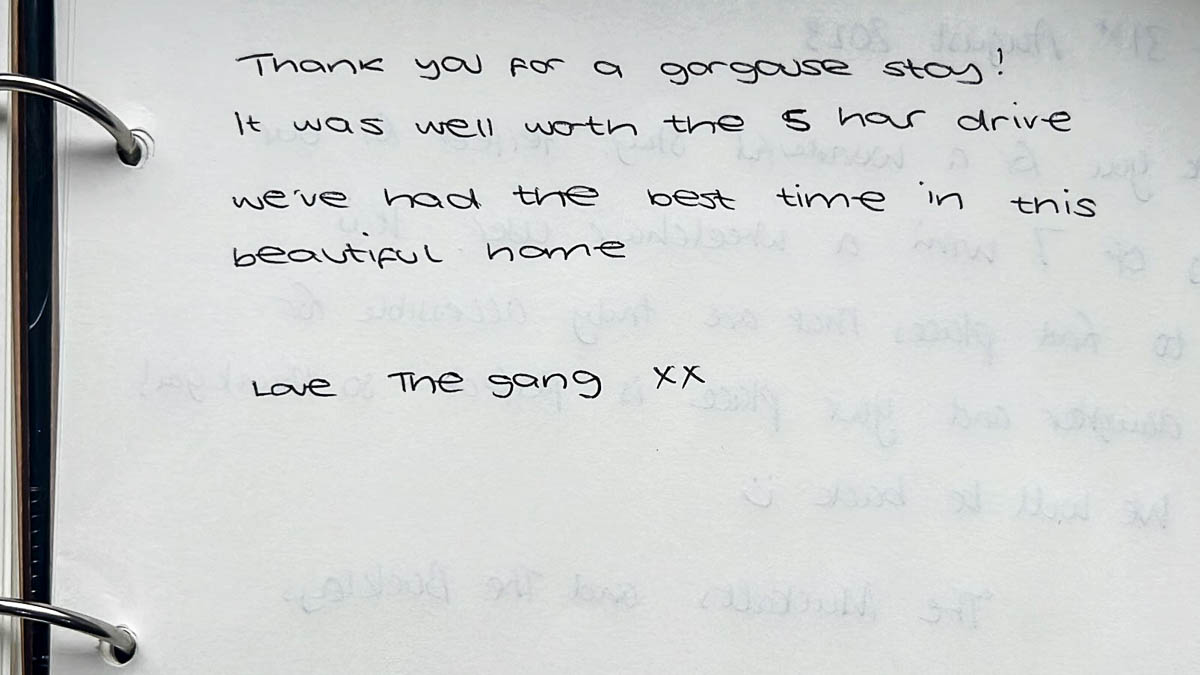 Thank you for a gorgouse stay!
It was well woth the 5 hour drive
we've had the best time in this
beautiful home
Love The gang xx